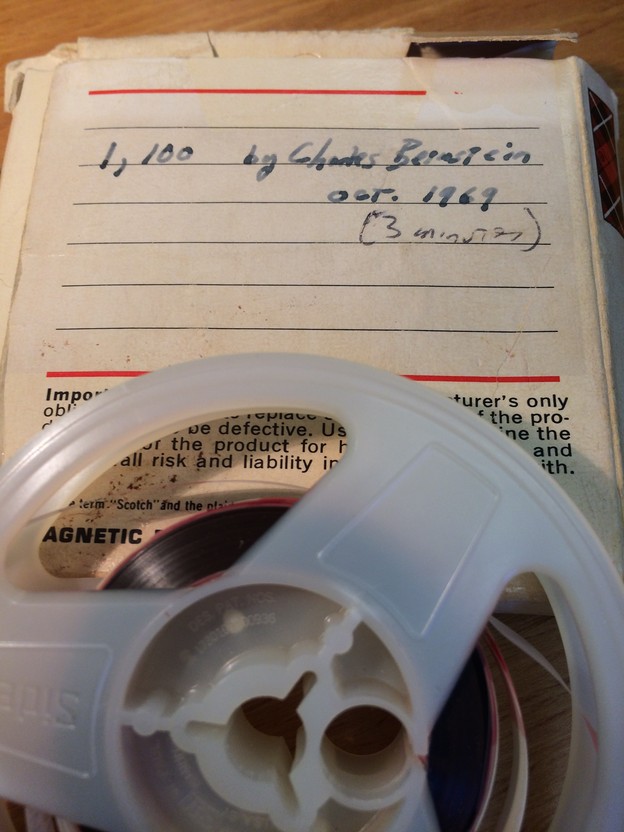 1, 100 by Charles Bernstein
oct. 1969
(3 minutes)
turer's only
obli to replace of the pro-
be defective. Us ine the
or the product for h and
all risk and liability in ith.
term "Scotch" and the plai
AGNETIC
Side